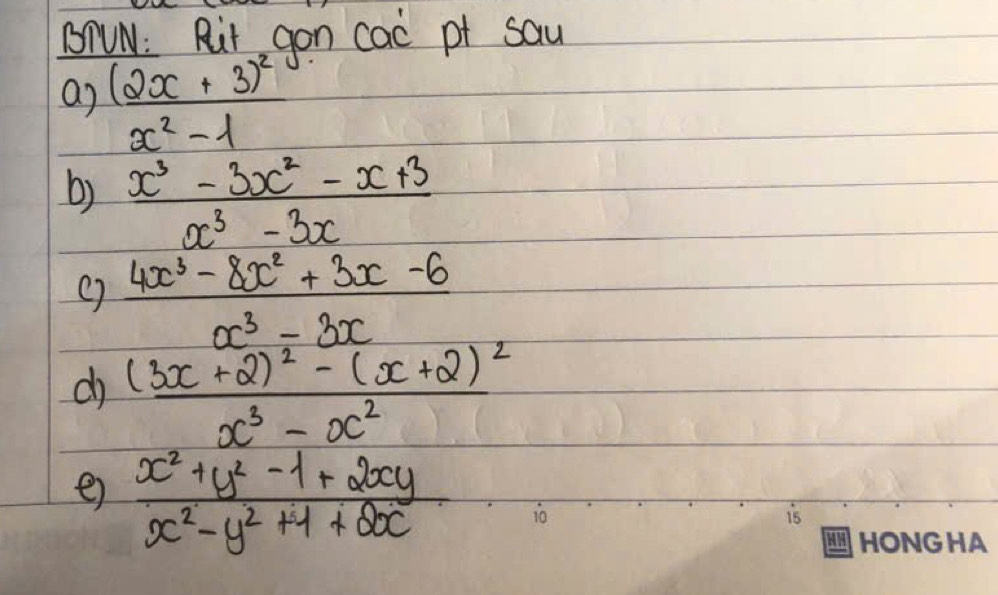 BTVN: Rút gọn các pt sau
a) (2x + 3)²
x² - 1
b) x³ - 3x² - x + 3
x³ - 3x
c) 4x³ - 8x² + 3x - 6
x³ - 3x
d) (3x + 2)² - (x + 2)²
x³ - x²
e) x² + y² - 1 + 2xy
x² - y² + 1 + 2x
10 15
HH HONG HA